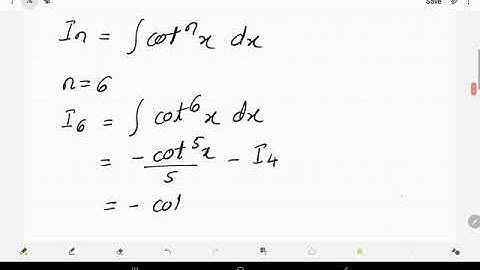 Save
Iₙ = ∫ cotⁿx dx
n = 6
I₆ = ∫ cot⁶x dx
= -cot⁵x/5 - I₄
= - cot